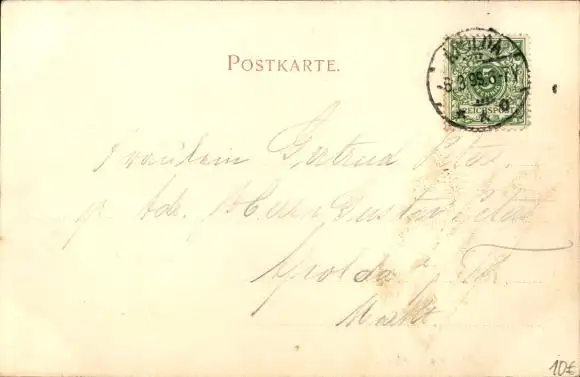 POSTKARTE.
APOLDA
5
REICHSPOST
Fräulein Gertrud Peter.
p. Adr. Herrn Gustav Peter
Apolda i/Th.
Markt.
10€